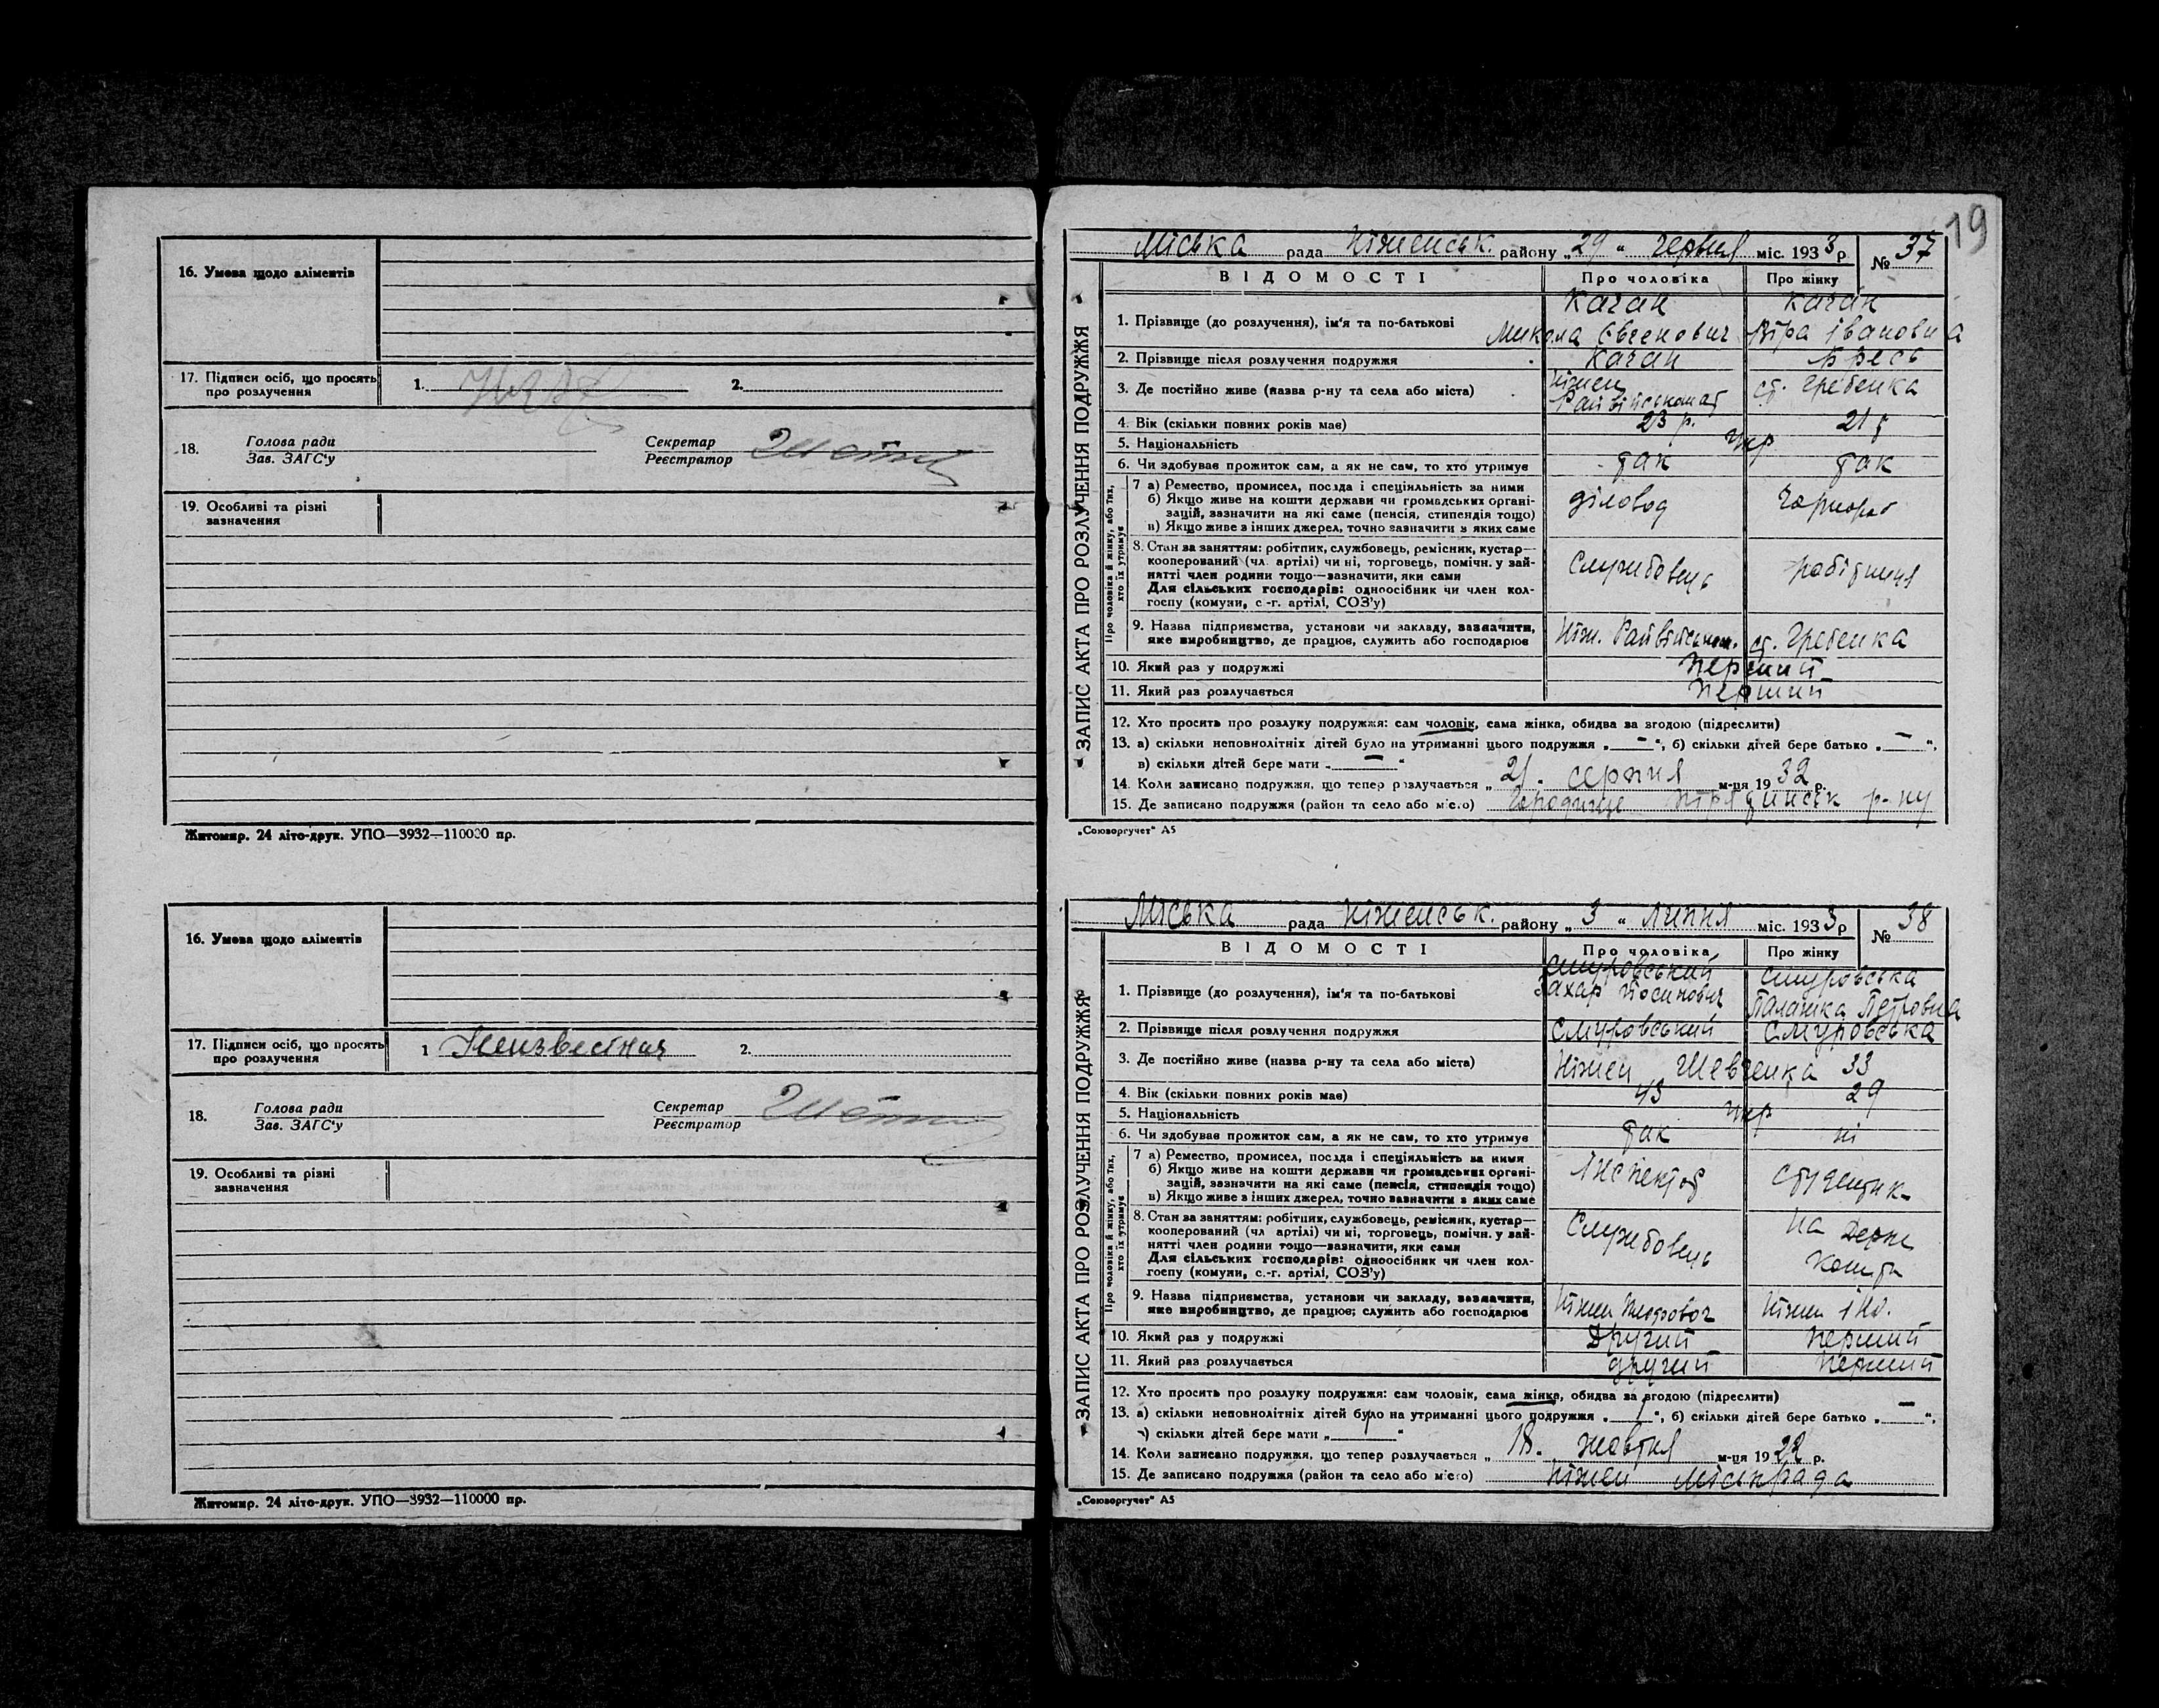 16. Умова щодо аліментів
17. Підписи осіб, що просять
про розлучення
1.
2.
18.
Голова ради
Зав. ЗАГС'у
Секретар
Реєстратор
19. Особливі та різні
зазначення
Житомир. 24 літо-друк. УПО—3932—110000 пр.
16. Умова щодо аліментів
17. Підписи осіб, що просять
про розлучення
1
2.
18.
Голова ради
Зав. ЗАГС'у
Секретар
Реєстратор
19. Особливі та різні
зазначення
Житомир. 24 літо-друк. УПО—3932—110000 пр.
19
ЗАПИС АКТА ПРО РОЗЛУЧЕННЯ ПОДРУЖЖЯ
Міська рада Ніженськ. району „29" червня міс. 1933 р № 37
ВІДОМОСТІ Про чоловіка Про жінку
1. Прізвище (до розлучення), ім'я та по-батькові Качан Микола Євгенович Качан Віра Івановна
2. Прізвище після розлучення подружжя Качан Кресь
3. Де постійно живе (назва р-ну та села або міста) Ніжен Райвійськомат ст. Гребенка
4. Вік (скільки повних років має) 23 р. 21 р
5. Національність Укр
6. Чи здобував прожиток сам, а як не сам, то хто утримує так так
Про чоловіка й жінку, або тих,
хто їх утримує
7 а) Ремество, промисел, посада і спеціяльність за ними
б) Якщо живе на кошти держави чи громадських органі-
зацій, зазначити на які саме (пенсія, стипендія тощо)
в) Якщо живе з інших джерел, точно зазначити з яких саме
діловод Чорнороб
8. Стан за заняттям: робітник, службовець, ремісник, кустар—
кооперований (чл. артілі) чи ні, торговець, помічн. у зай-
нятті член родини тощо—зазначити, яки сами
Для сільських господарів: одноосібник чи член кол-
госпу (комуни, с.-г. артілі, СОЗ'у)
Службовець робітниця
9. Назва підприємства, установи чи закладу, зазначити,
яке виробництво, де працює, служить або господарює
Ніж. Райвійськом. ст. Гребенка
10. Який раз у подружжі Перший
11. Який раз розлучається Перший
12. Хто просить про розлуку подружжя: сам чоловік, сама жінка, обидва за згодою (підреслити)
13. а) скільки неповнолітніх дітей було на утриманні цього подружжя „ — ", б) скільки дітей бере батько „ — ",
в) скільки дітей бере мати „ — "
14. Коли записано подружжя, що тепер розлучається „21. серпня м-ця 1932 р.
15. Де записано подружжя (район та село або місто) Городище р-ну
„Союзоргучет" А5
ЗАПИС АКТА ПРО РОЗЛУЧЕННЯ ПОДРУЖЖЯ
Міська рада Ніженськ. району „3" липня міс. 1933 р № 38
ВІДОМОСТІ Про чоловіка Про жінку
1. Прізвище (до розлучення), ім'я та по-батькові Смуровський Захар Йосипович Смуровська Палажка Петровна
2. Прізвище після розлучення подружжя Смуровський Смуровська
3. Де постійно живе (назва р-ну та села або міста) Ніжен Шевченка 33
4. Вік (скільки повних років має) 43 29
5. Національність Укр
6. Чи здобував прожиток сам, а як не сам, то хто утримує так ні
Про чоловіка й жінку, або тих,
хто їх утримує
7 а) Ремество, промисел, посада і спеціяльність за ними
б) Якщо живе на кошти держави чи громадських органі-
зацій, зазначити на які саме (пенсія, стипендія тощо)
в) Якщо живе з інших джерел, точно зазначити з яких саме
Інспектор студентк-
8. Стан за заняттям: робітник, службовець, ремісник, кустар—
кооперований (чл артілі) чи ні, торговець, помічн. у зай-
нятті член родини тощо—зазначити, яки сами
Для сільських господарів: одноосібник чи член кол-
госпу (комуни, с.-г. артілі, СОЗ'у)
Службовець На Держ Кошти
9. Назва підприємства, установи чи закладу, зазначити,
яке виробництво, де працює, служить або господарює
Ніжен Ніжен ІНО.
10. Який раз у подружжі Другий Перший
11. Який раз розлучається другий Перший
12. Хто просить про розлуку подружжя: сам чоловік, сама жінка, обидва за згодою (підреслити)
13. а) скільки неповнолітніх дітей було на утриманні цього подружжя „ 1 ", б) скільки дітей бере батько „ — ",
в) скільки дітей бере мати „ "
14. Коли записано подружжя, що тепер розлучається „18. жовтня м-ця 1922 р.
15. Де записано подружжя (район та село або місто) Ніжен Міськрада
„Союзоргучет" А5